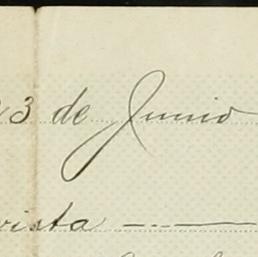 3 de Junio
vista